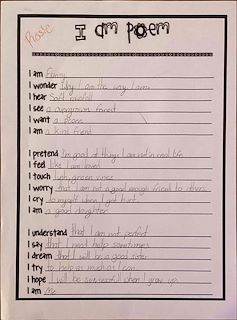 Rosie
I am poem
I am Funny
I wonder why I am the way I am
I hear Soft rainfall
I see a overgrown forest
I want a phone
I am a kind friend
I pretend I'm good at things I am not in real life
I feel like I am loved
I touch lush, green vines
I worry that I am not a good enough friend to others
I cry to myself when I get hurt
I am a good daughter
I understand that I am not perfect
I say that I need help sometimes
I dream that I will be a good sister
I try to help as much as I can
I hope I will be successful when I grow up
I am Me